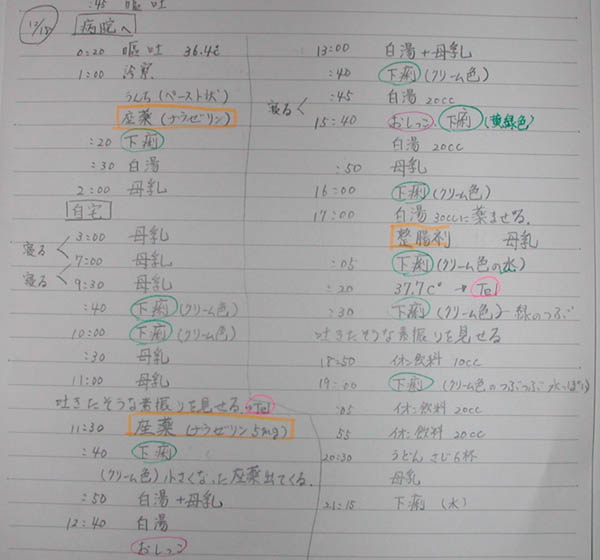 :45 嘔吐
12/18 病院へ
0:20 嘔吐 36.4℃
1:00 診察
うんち(ペースト状)
座薬(ナウゼリン)
:20 下痢
:30 白湯
2:00 母乳
自宅
寝る 3:00 母乳
寝る 7:00 母乳
9:30 母乳
:40 下痢(クリーム色)
10:00 下痢(クリーム色)
:30 母乳
11:00 母乳
吐きたそうな素振りを見せる→Tel
11:30 座薬(ナウゼリン5mg)
:40 下痢
(クリーム色)小さくなった座薬出てくる。
:50 白湯+母乳
12:40 白湯
おしっこ
13:00 白湯+母乳
:40 下痢(クリーム色)
寝る :45 白湯20cc
15:40 おしっこ、下痢(黄緑色)
白湯20cc
:50 母乳
16:00 下痢(クリーム色)
17:00 白湯30ccに薬ませる。
整腸剤 母乳
:05 下痢(クリーム色の水)
:20 37.7C° → Tel
:30 下痢(クリーム色 緑のつぶ
吐きたそうな素振りを見せる
18:50 イオン飲料 10cc
19:00 下痢(クリーム色のつぶつぶ 水っぽい)
:05 イオン飲料 20cc
55 イオン飲料 20cc
20:30 うどん さじ6杯
母乳
21:15 下痢(水)